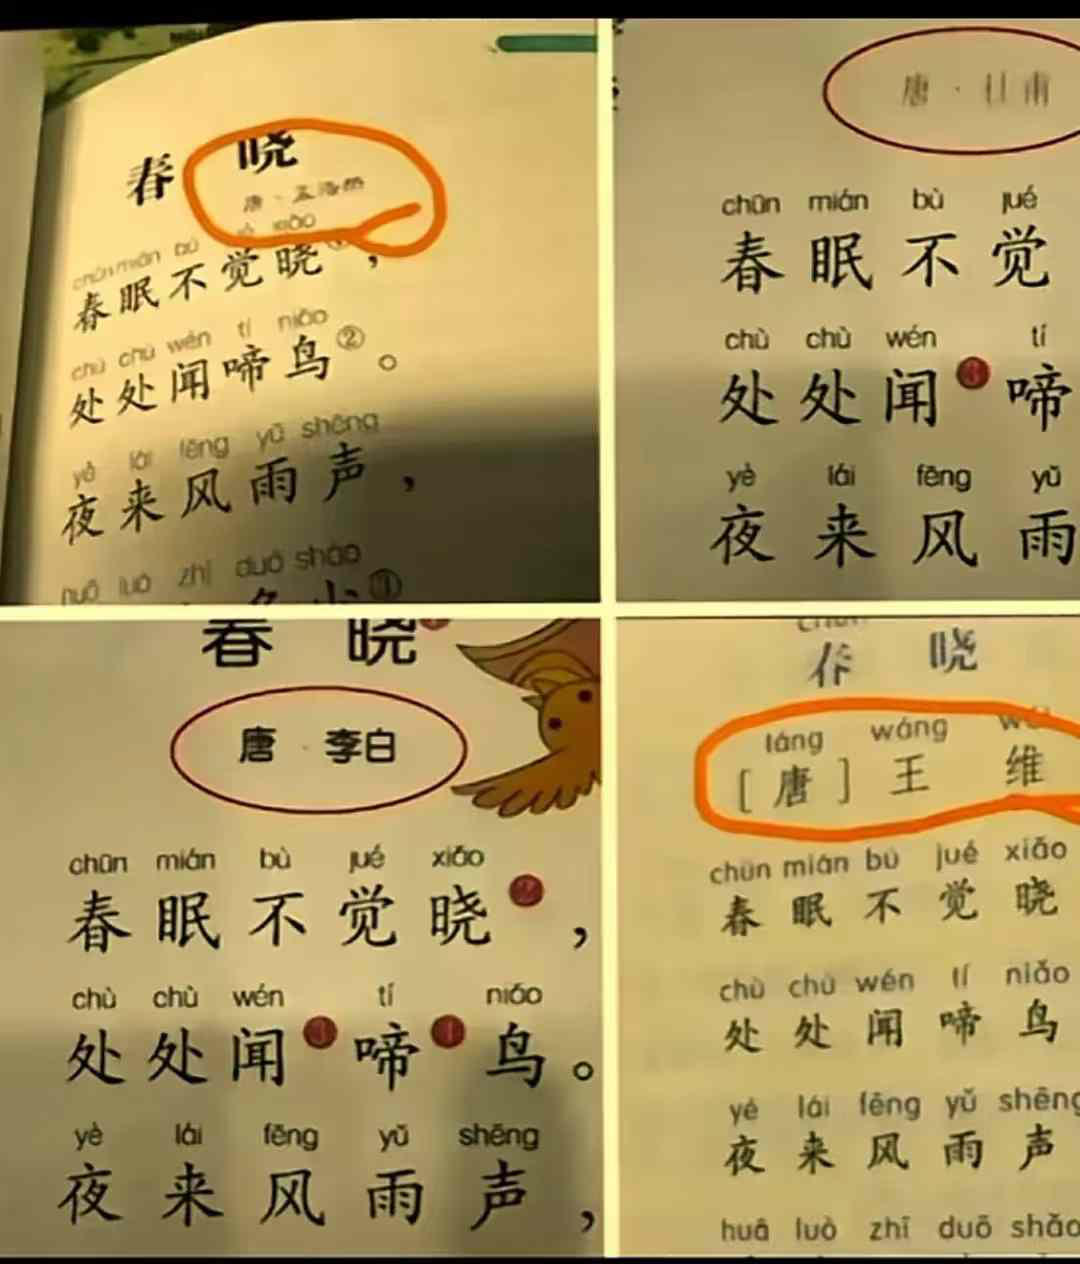 春 晓
唐 · 孟浩然
chūn mián bù xiǎo
春眠不觉晓，
chù chù wén tí niǎo
处处闻啼鸟②。
yè lái fēng yǔ shēng
夜来风雨声，
huā luò zhī duō shǎo
①
唐 · 杜甫
chūn mián bù jué
春眠不觉
chù chù wén tí
处处闻③啼
yè lái fēng yǔ
夜来风雨
春 晓
唐 · 李白
chūn mián bù jué xiǎo
春眠不觉晓②，
chù chù wén tí niǎo
处处闻③啼④鸟。
yè lái fēng yǔ shēng
夜来风雨声，
春 晓
táng wáng
[唐] 王 维
chūn mián bù jué xiǎo
春眠不觉晓
chù chù wén tí niǎo
处处闻啼鸟
yè lái fēng yǔ shēng
夜来风雨声
huā luò zhī duō shǎo